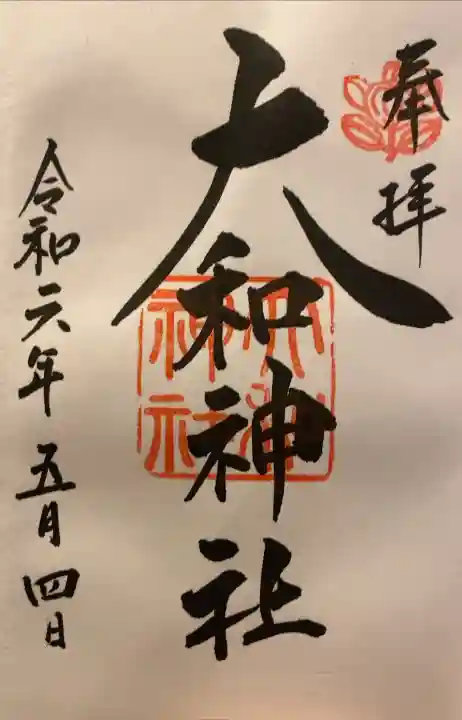 奉拝
大和神社
大和神社
令和六年五月四日